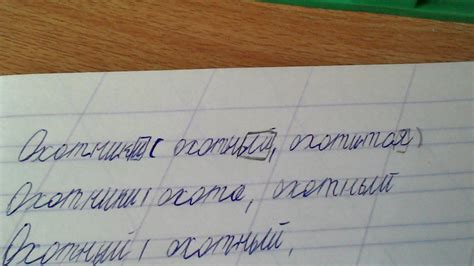 Охотник ( охотный, охотится)
Охотник охота, охотный
Охотный охотный,